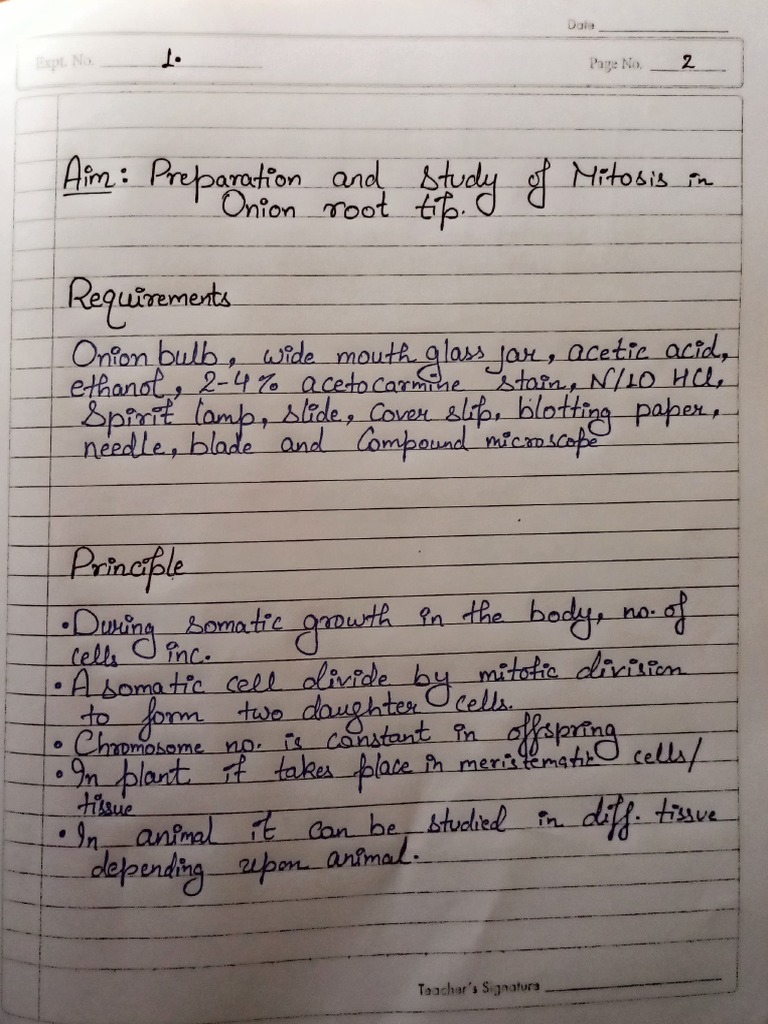 Date
Expt. No. 1.
Page No. 2
Aim: Preparation and study of Mitosis in
Onion root tip.
Requirements
Onion bulb, wide mouth glass jar, acetic acid,
ethanol, 2-4% acetocarmine stain, N/10 HCl,
Spirit lamp, slide, cover slip, blotting paper,
needle, blade and Compound microscope
Principle
• During somatic growth in the body, no. of
cells inc.
• A somatic cell divide by mitotic division
to form two daughter cells.
• Chromosome no. is constant in offspring
• In plant it takes place in meristematic cells/
tissue
• In animal it can be studied in diff. tissue
depending upon animal.
Teacher's Signature